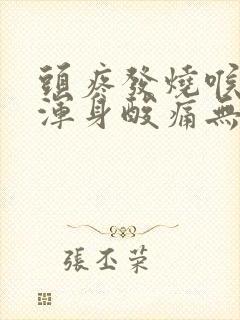 頭疼發燒喉
渾身酸痛無
張丕榮